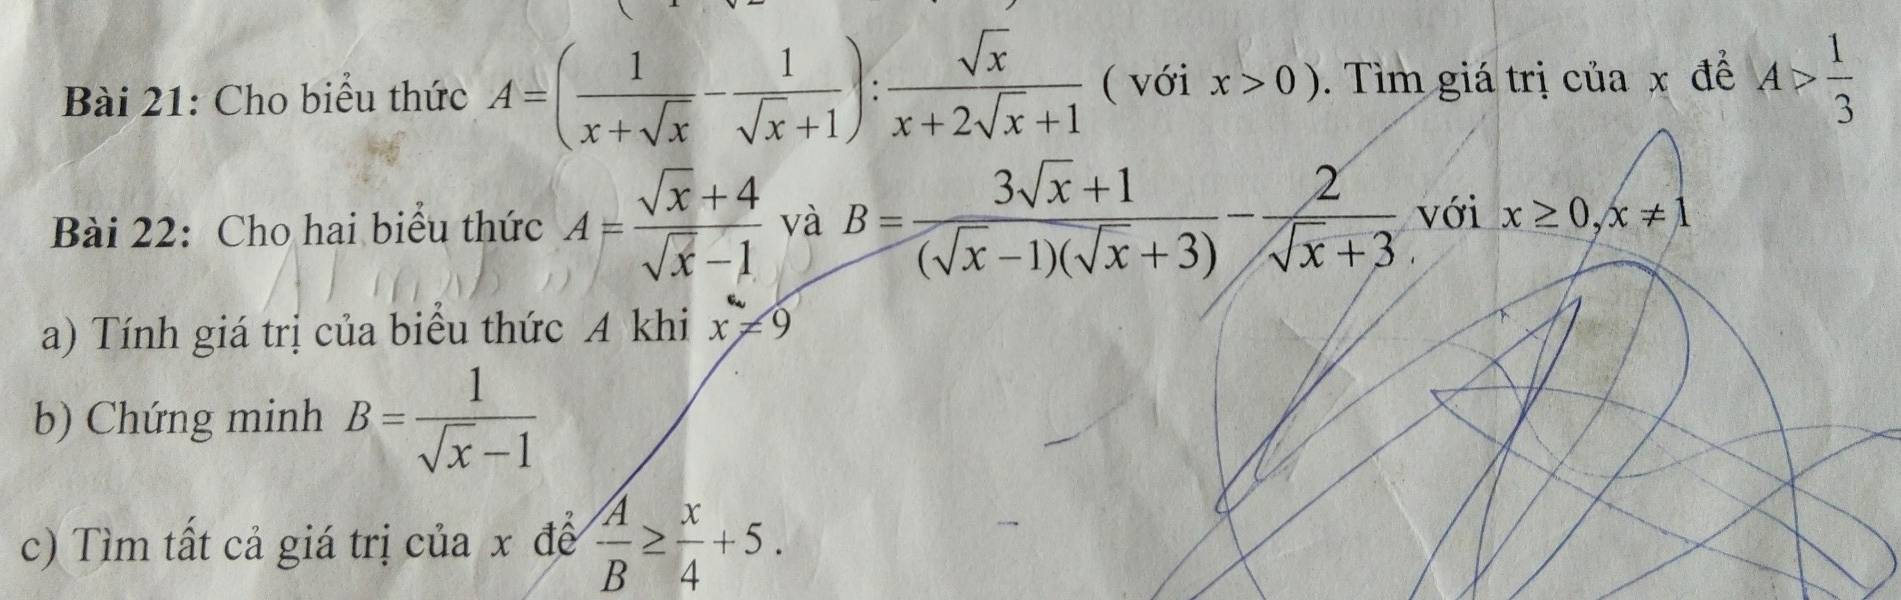 Bài 21: Cho biểu thức $A=\left(\dfrac{1}{x+\sqrt{x}}-\dfrac{1}{\sqrt{x}+1}\right):\dfrac{\sqrt{x}}{x+2\sqrt{x}+1}$ ( với $x>0$ ). Tìm giá trị của $x$ để $A>\dfrac{1}{3}$
Bài 22: Cho hai biểu thức $A=\dfrac{\sqrt{x}+4}{\sqrt{x}-1}$ và $B=\dfrac{3\sqrt{x}+1}{(\sqrt{x}-1)(\sqrt{x}+3)}-\dfrac{2}{\sqrt{x}+3}$ với $x\geq 0, x\neq 1$.
a) Tính giá trị của biểu thức $A$ khi $x=9$
b) Chứng minh $B=\dfrac{1}{\sqrt{x}-1}$
c) Tìm tất cả giá trị của $x$ để $\dfrac{A}{B}\geq\dfrac{x}{4}+5$.